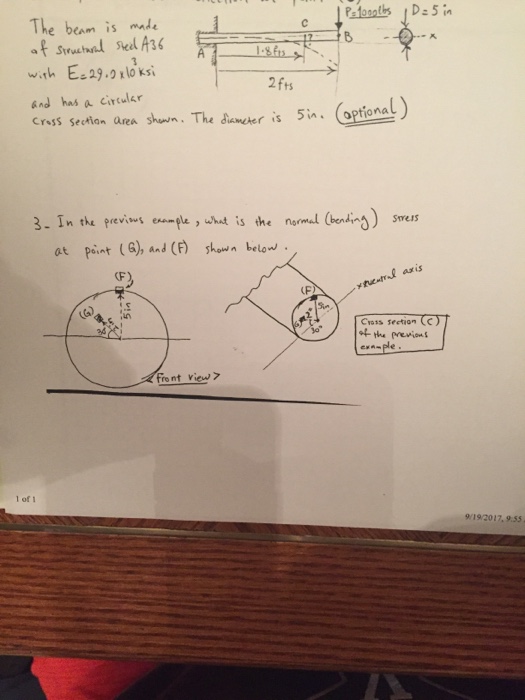 The beam is made
of Structural steel A36
with E=29.0x10³ ksi
and has a circular
cross section area shown. The diameter is 5in. (optional)
P=1000lbs
D=5 in
C
A
B
x
1.8fts
2fts
3- In the previous example, what is the normal (bending) stress
at point (G), and (F) shown below.
(F)
(G)
5in
<Front view>
(F)
5in
2"
30°
x neutral axis
Cross section (C)
of the previous
example.
1 of 1
9/19/2017, 9:55